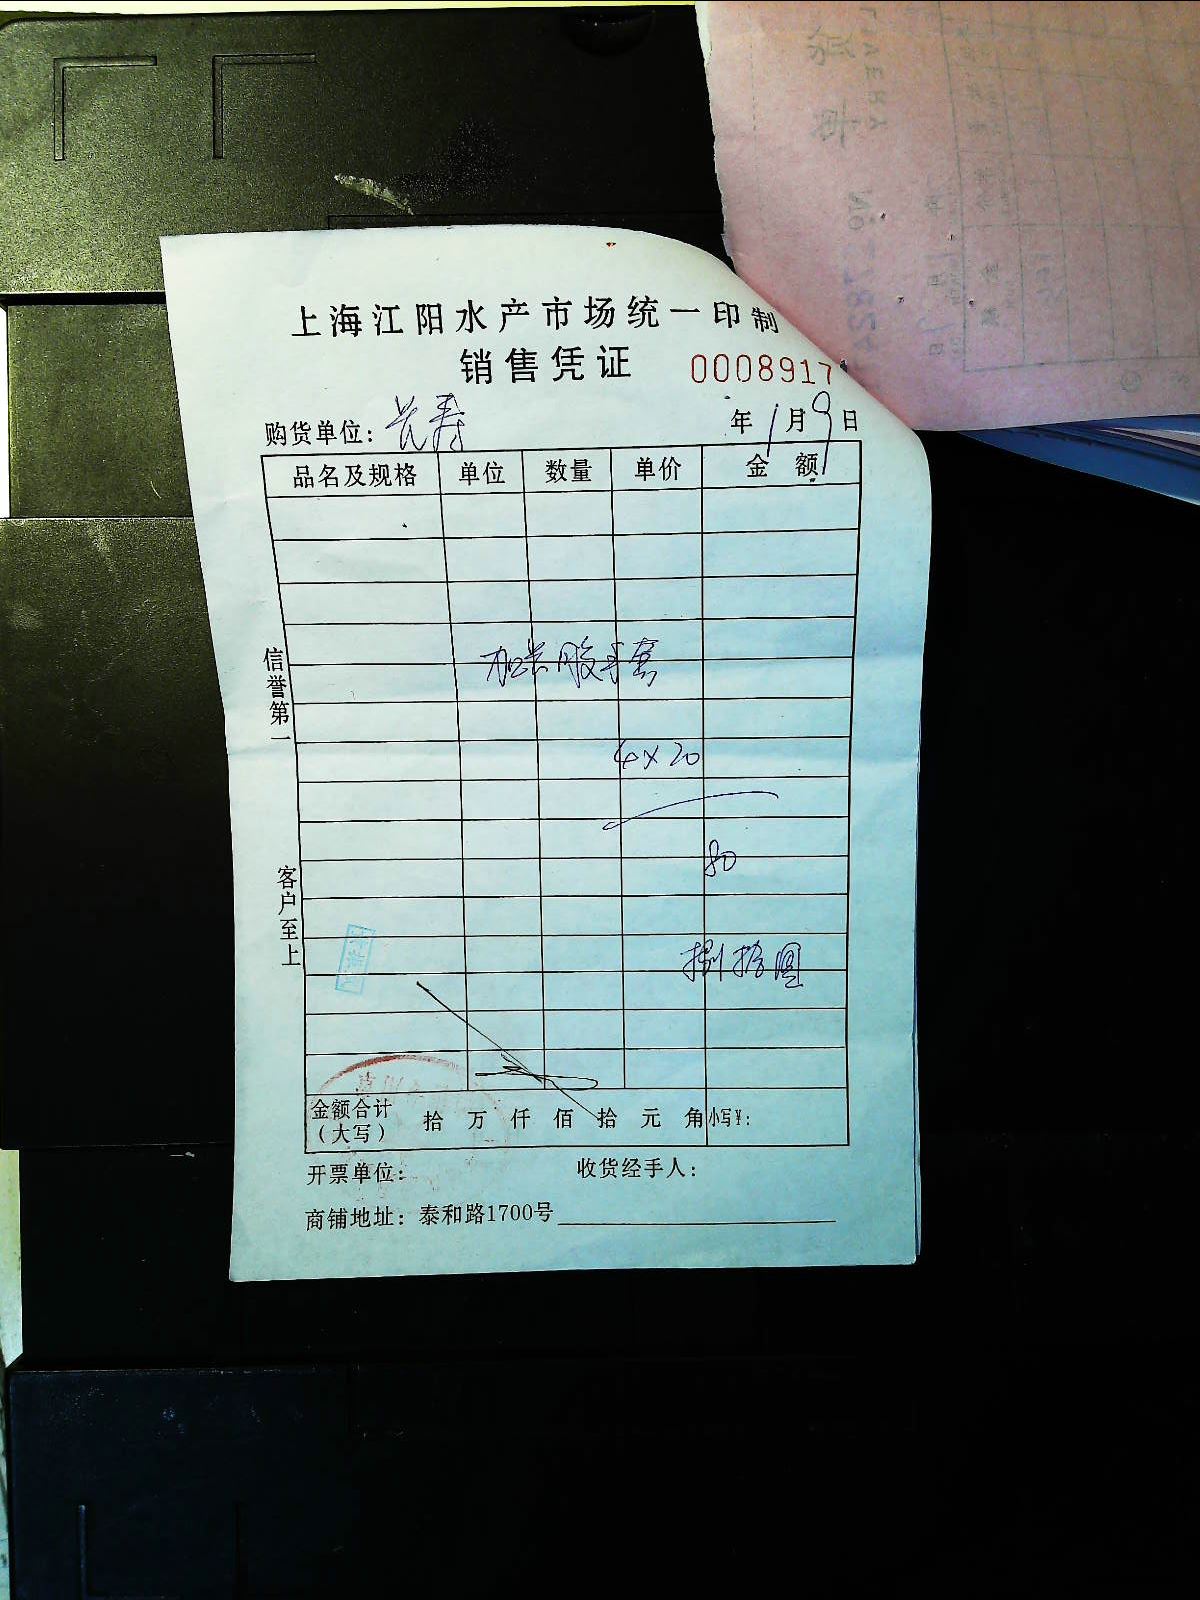 上海江阳水产市场统一印制
销售凭证 0008917
购货单位：长寿 年1月9日
品名及规格 单位 数量 单价 金额
加长胶手套
4×20
80
捌拾圆
信誉第一
客户至上
金额合计（大写） 拾 万 仟 佰 拾 元 角 小写¥：
开票单位： 收货经手人：
商铺地址：泰和路1700号